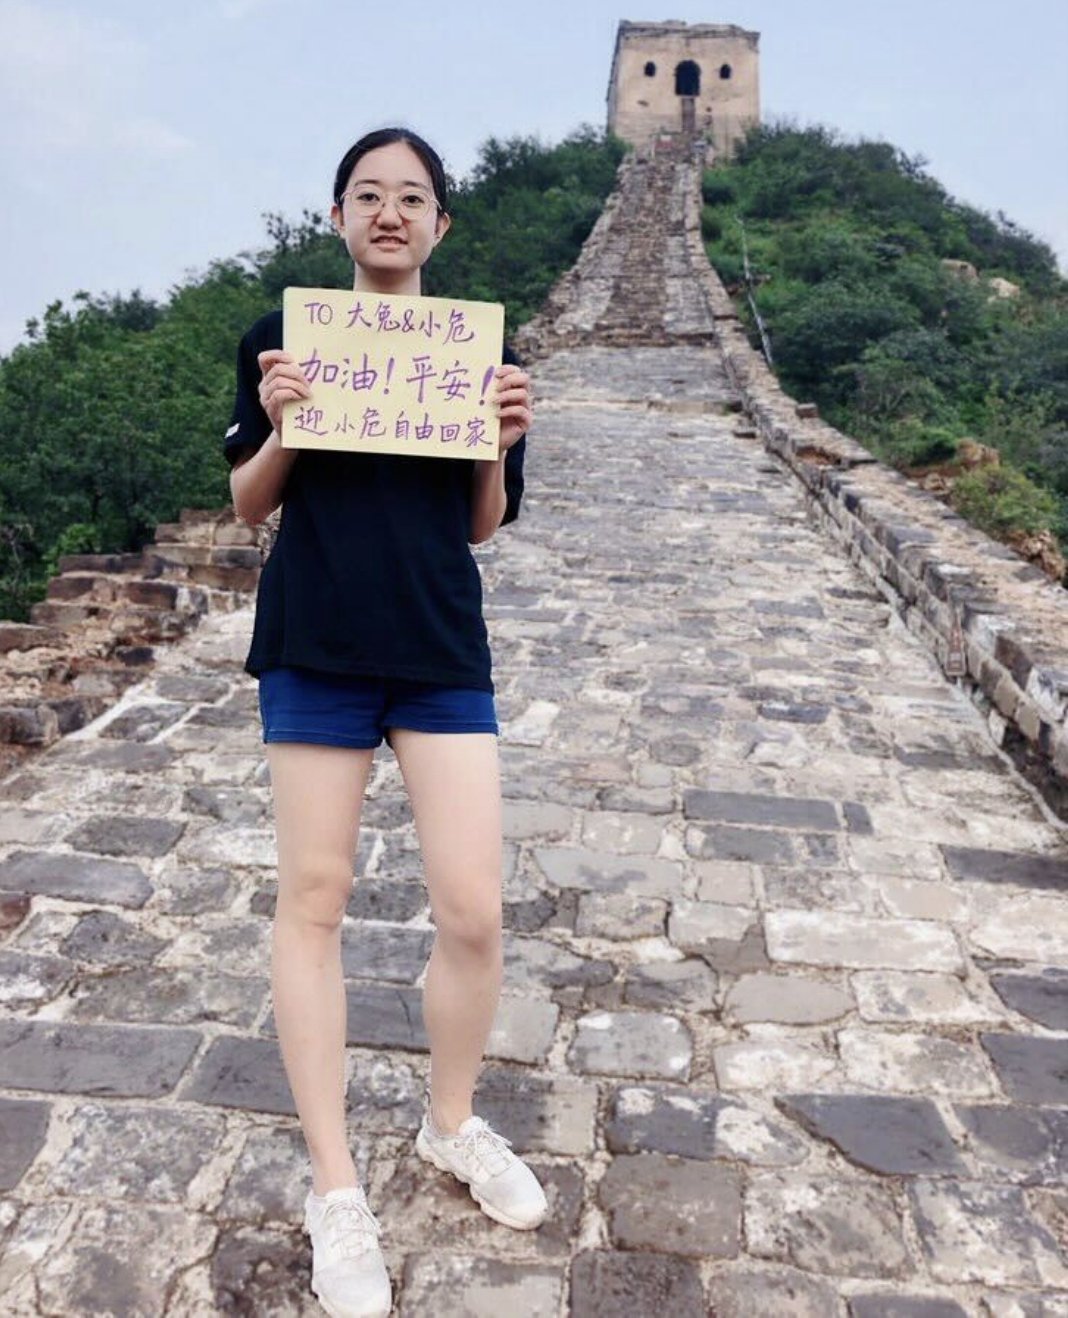 TO 大兔&小危
加油！平安！
迎小危自由回家